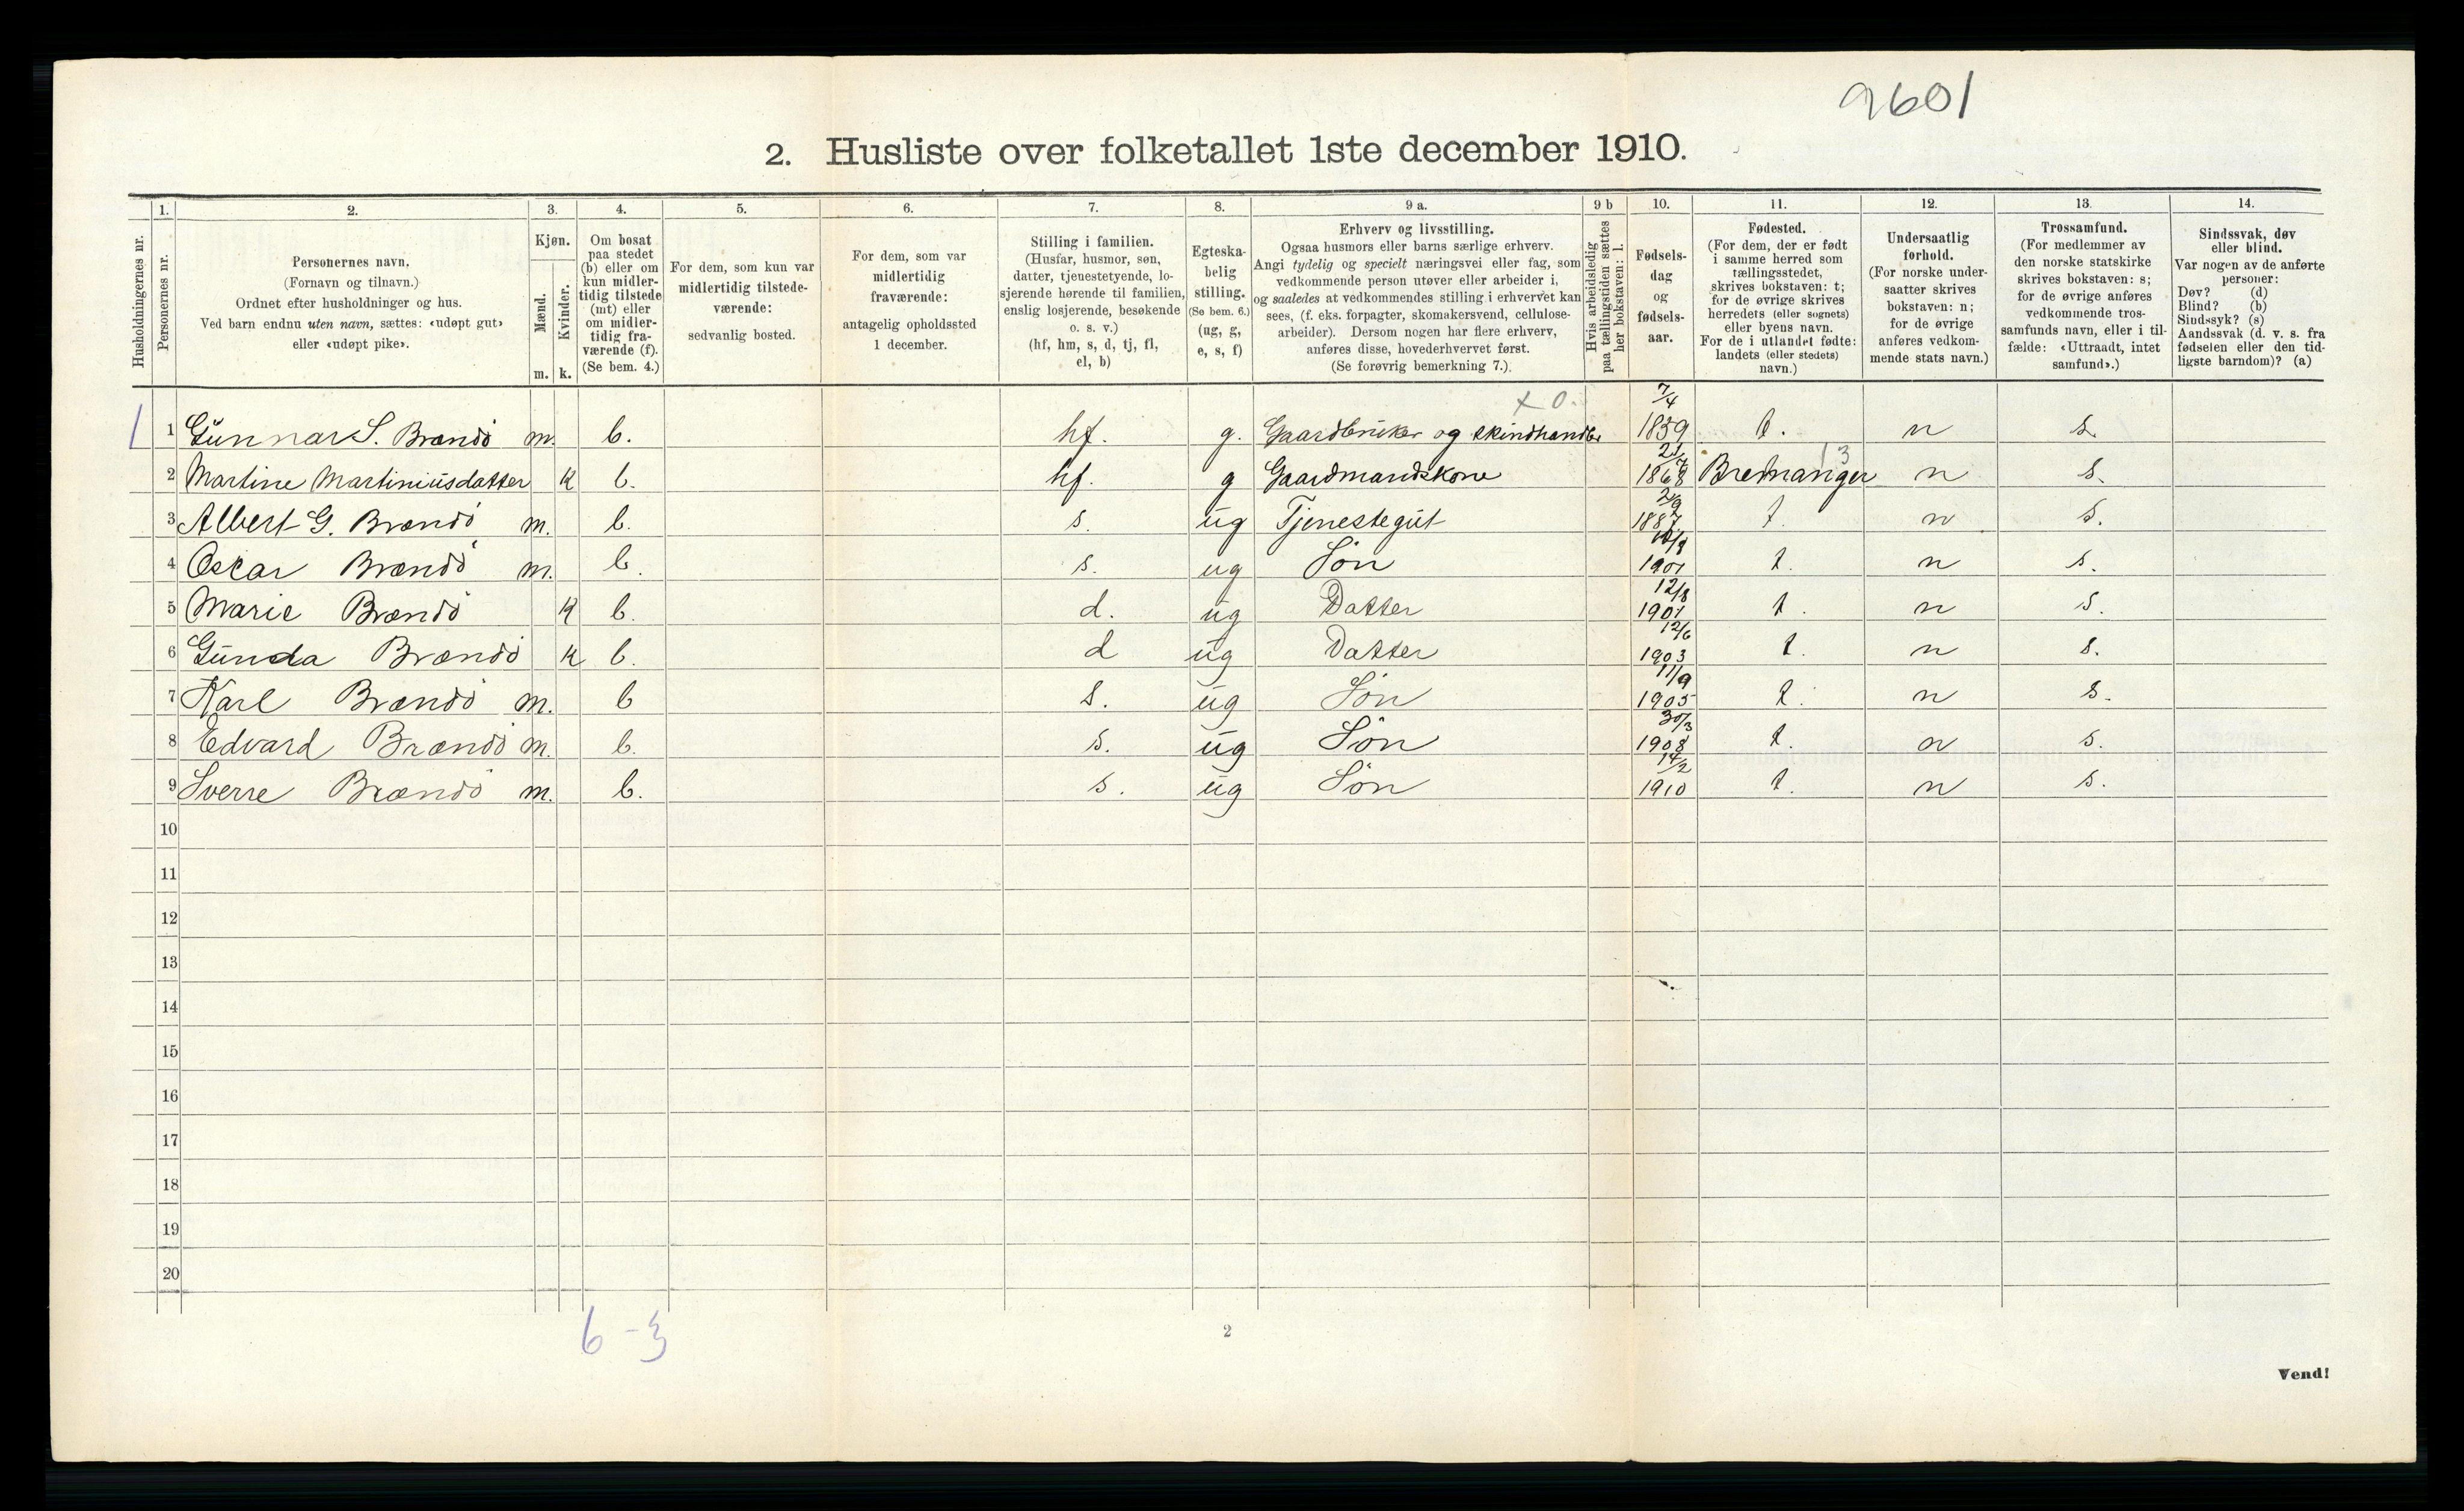 9601
2. Husliste over folketallet 1ste december 1910.
Husholdningernes nr.
1.
Personernes nr.
2.
Personernes navn.
(Fornavn og tilnavn.)
Ordnet efter husholdninger og hus.
Ved barn endnu uten navn, sættes: «udøpt gut»
eller «udøpt pike».
3.
Kjøn.
Mænd.
Kvinder.
m. k.
4.
Om bosat
paa stedet
(b) eller om
kun midler-
tidig tilstede
(mt) eller
om midler-
tidig fra-
værende (f).
(Se bem. 4.)
5.
For dem, som kun var
midlertidig tilstede-
værende:
sedvanlig bosted.
6.
For dem, som var
midlertidig
fraværende:
antagelig opholdssted
1 december.
7.
Stilling i familien.
(Husfar, husmor, søn,
datter, tjenestetyende, lo-
sjerende hørende til familien,
enslig losjerende, besøkende
o. s. v.)
(hf, hm, s, d, tj, fl,
el, b)
8.
Egteska-
belig
stilling.
(Se bem. 6.)
(ug, g,
e, s, f)
9 a.
Erhverv og livsstilling.
Ogsaa husmors eller barns særlige erhverv.
Angi tydelig og specielt næringsvei eller fag, som
vedkommende person utøver eller arbeider i,
og saaledes at vedkommendes stilling i erhvervet kan
sees, (f. eks. forpagter, skomakersvend, cellulose-
arbeider). Dersom nogen har flere erhverv,
anføres disse, hovederhvervet først.
(Se forøvrig bemerkning 7.)
9 b
Hvis arbeidsledig
paa tællingstiden sættes
her bokstaven: l.
10.
Fødsels-
dag
og
fødsels-
aar.
11.
Fødested.
(For dem, der er født
i samme herred som
tællingsstedet,
skrives bokstaven: t;
for de øvrige skrives
herredets (eller sognets)
eller byens navn.
For de i utlandet fødte:
landets (eller stedets)
navn.)
12.
Undersaatlig
forhold.
(For norske under-
saatter skrives
bokstaven: n;
for de øvrige
anføres vedkom-
mende stats navn.)
13.
Trossamfund.
(For medlemmer av
den norske statskirke
skrives bokstaven: s;
for de øvrige anføres
vedkommende tros-
samfunds navn, eller i til-
fælde: «Uttraadt, intet
samfund».)
14.
Sindssvak, døv
eller blind.
Var nogen av de anførte
personer:
Døv? (d)
Blind? (b)
Sindssyk? (s)
Aandssvak (d. v. s. fra
fødselen eller den tid-
ligste barndom)? (a)
x 0.
1 1 Gunnar S. Brændö m. b. hf. g. Gaardbruker og skindhandler 7/4 1859 t. n s.
13
2 Martine Martiniusdatter k b. hf. g Gaardmandskone 1868 Bremanger n s.
3 Albert G. Brændö m. b. s. ug Tjenestegut 1887 t. n s.
4 Oscar Brændö m. b. s. ug Sön 1901 t. n s.
5 Marie Brændö k b. d. ug Datter 12/8 1901 t. n s.
6 Gunda Brændö k b. d ug Datter 12/6 1903 t. n s.
7 Karl Brændö m. b s. ug Sön 11/9 1905 t. n s.
8 Edvard Brændö m. b. s. ug Sön 30/3 1908 t. n s.
9 Sverre Brændö m. b. s. ug Sön 14/2 1910 t. n s.
10
11
12
13
14
15
16
17
18
19
20
6 - 3
2
Vend!